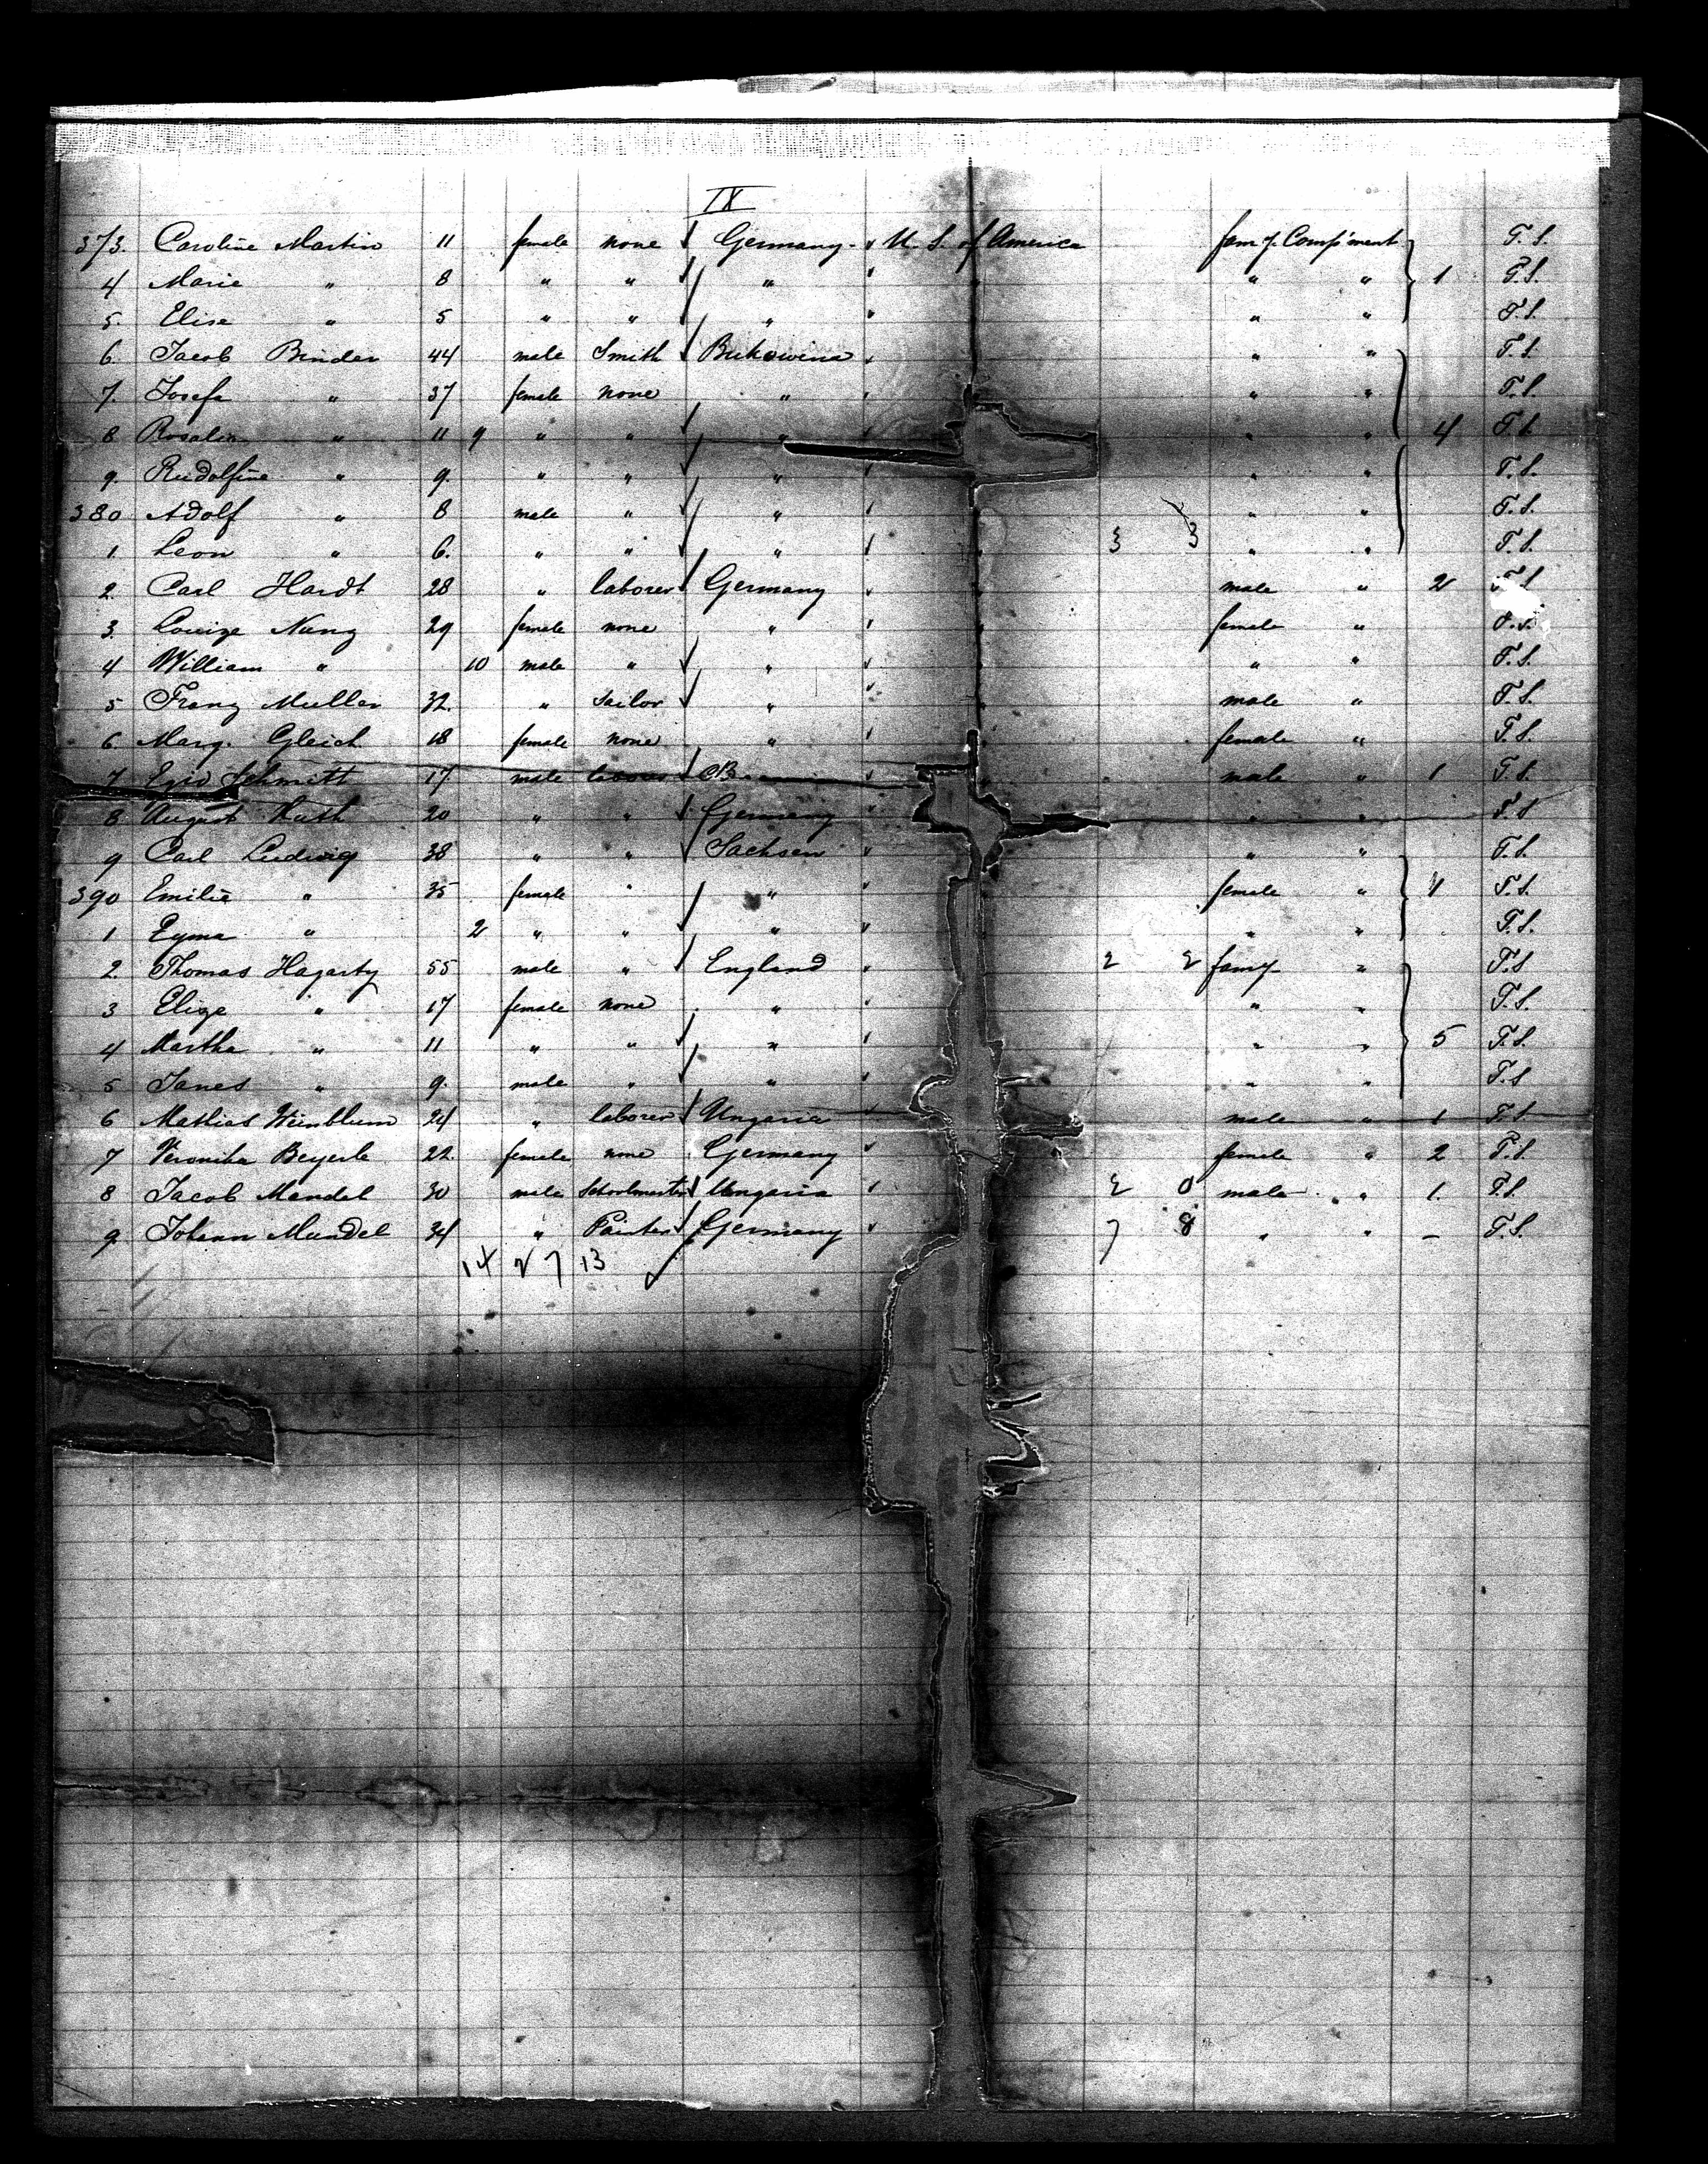 IX
373. Caroline Martin 11 female none Germany U. S. of America fam'y. Comp'ment T. S.
4 Marie " 8 " " " " " 1 T. S.
5. Elise " 5 " " " " " T. S.
6. Jacob Binder 44 male Smith Bukowina " " T. S.
7. Josefa " 37 female none " " " T. S.
8 Rosalin " 11 9 " " " " " 4 T. S.
9. Rudolfine " 9. " " " " " T. S.
380 Adolf " 8 male " " " " T. S.
1. Leon " 6. " " " 3 3 " " T. S.
2. Carl Hardt 28 " laborer Germany male " 2 T. S.
3. Louize Nanz 29 female none " female " T. S.
4 William " 10 male " " " " T. S.
5 Franz Muller 32. " Sailor " male " T. S.
6. Marg. Gleich 18 female none " female " T. S.
7 Schmitt 17 male laborer male " 1 T. S.
8 August 20 " " Germany " " T. S
9 Carl Ludwig 38 " " Sachsen " " T. S.
390 Emilie " 35 female " " female " 4 T. S.
1 " 2 " " " " " T. S.
2. Thomas Hagarty 55 male " England 2 2 fam'y " T. S
3 Elize " 17 female none " " " T. S.
4 Martha " 11 " " " " " 5 T. S.
5 James " 9. male " " " " T. S
6 Mathias Weinblum 24 " laborer Ungaria male " 1 T. S.
7 Veronika Beyerle 22. female none Germany female " 2 T. S.
8 Jacob Mandel 30 male Schoolmaster Ungaria 2 0 male " 1. T. S.
9. Johann Mundel 34 " Painter Germany 7 8 " " – T. S.
14 27 13